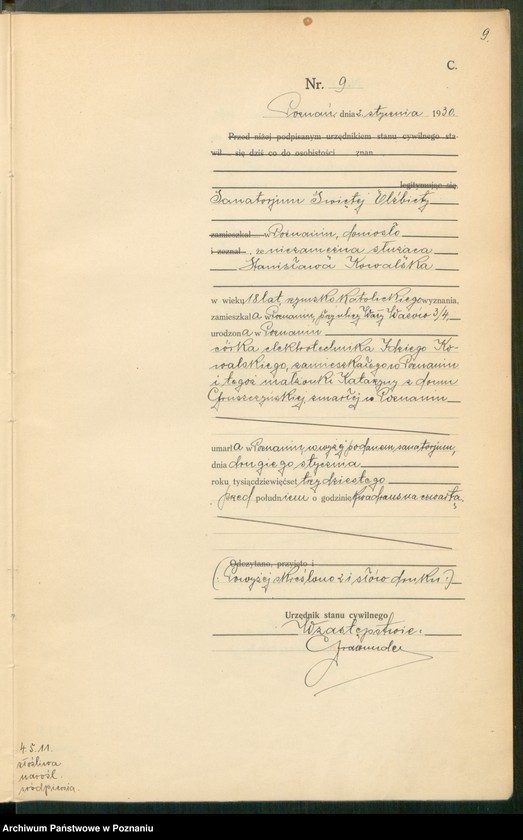 9.
C.
Nr. 9.
Poznań, dnia 2 stycznia 1930.
Przed niżej podpisanym urzędnikiem stanu cywilnego sta
wił się dziś co do osobistości znan
legitymując się
Sanatorjum Świętej Elżbiety
zamieszkał w Poznaniu, doniosło
i zeznał , że niezamężna służąca
Stanisława Kowalska
w wieku 18 lat, rzymsko katolickiego wyznania,
zamieszkała w Poznaniu, przy ulicy 3/4,
urodzona w Poznaniu
córka elektrotechnika Idziego Ko-
walskiego, zamieszkałego w Poznaniu
i tegoż małżonki Katarzyny z domu
zmarłej w Poznaniu
umarła w Poznaniu, w wyżej podanem sanatorjum,
dnia drugiego stycznia
roku tysiącdziewięćset trzydziestego
przed południem o godzinie kwadrans na czwartą.
Odczytano, przyjęto i
(: Powyżej skreślono 21 słów druku :)
Urzędnik stanu cywilnego
W zastępstwie:
4.5.11.
złośliwa
narośl
Archiwum Państwowe w Poznaniu